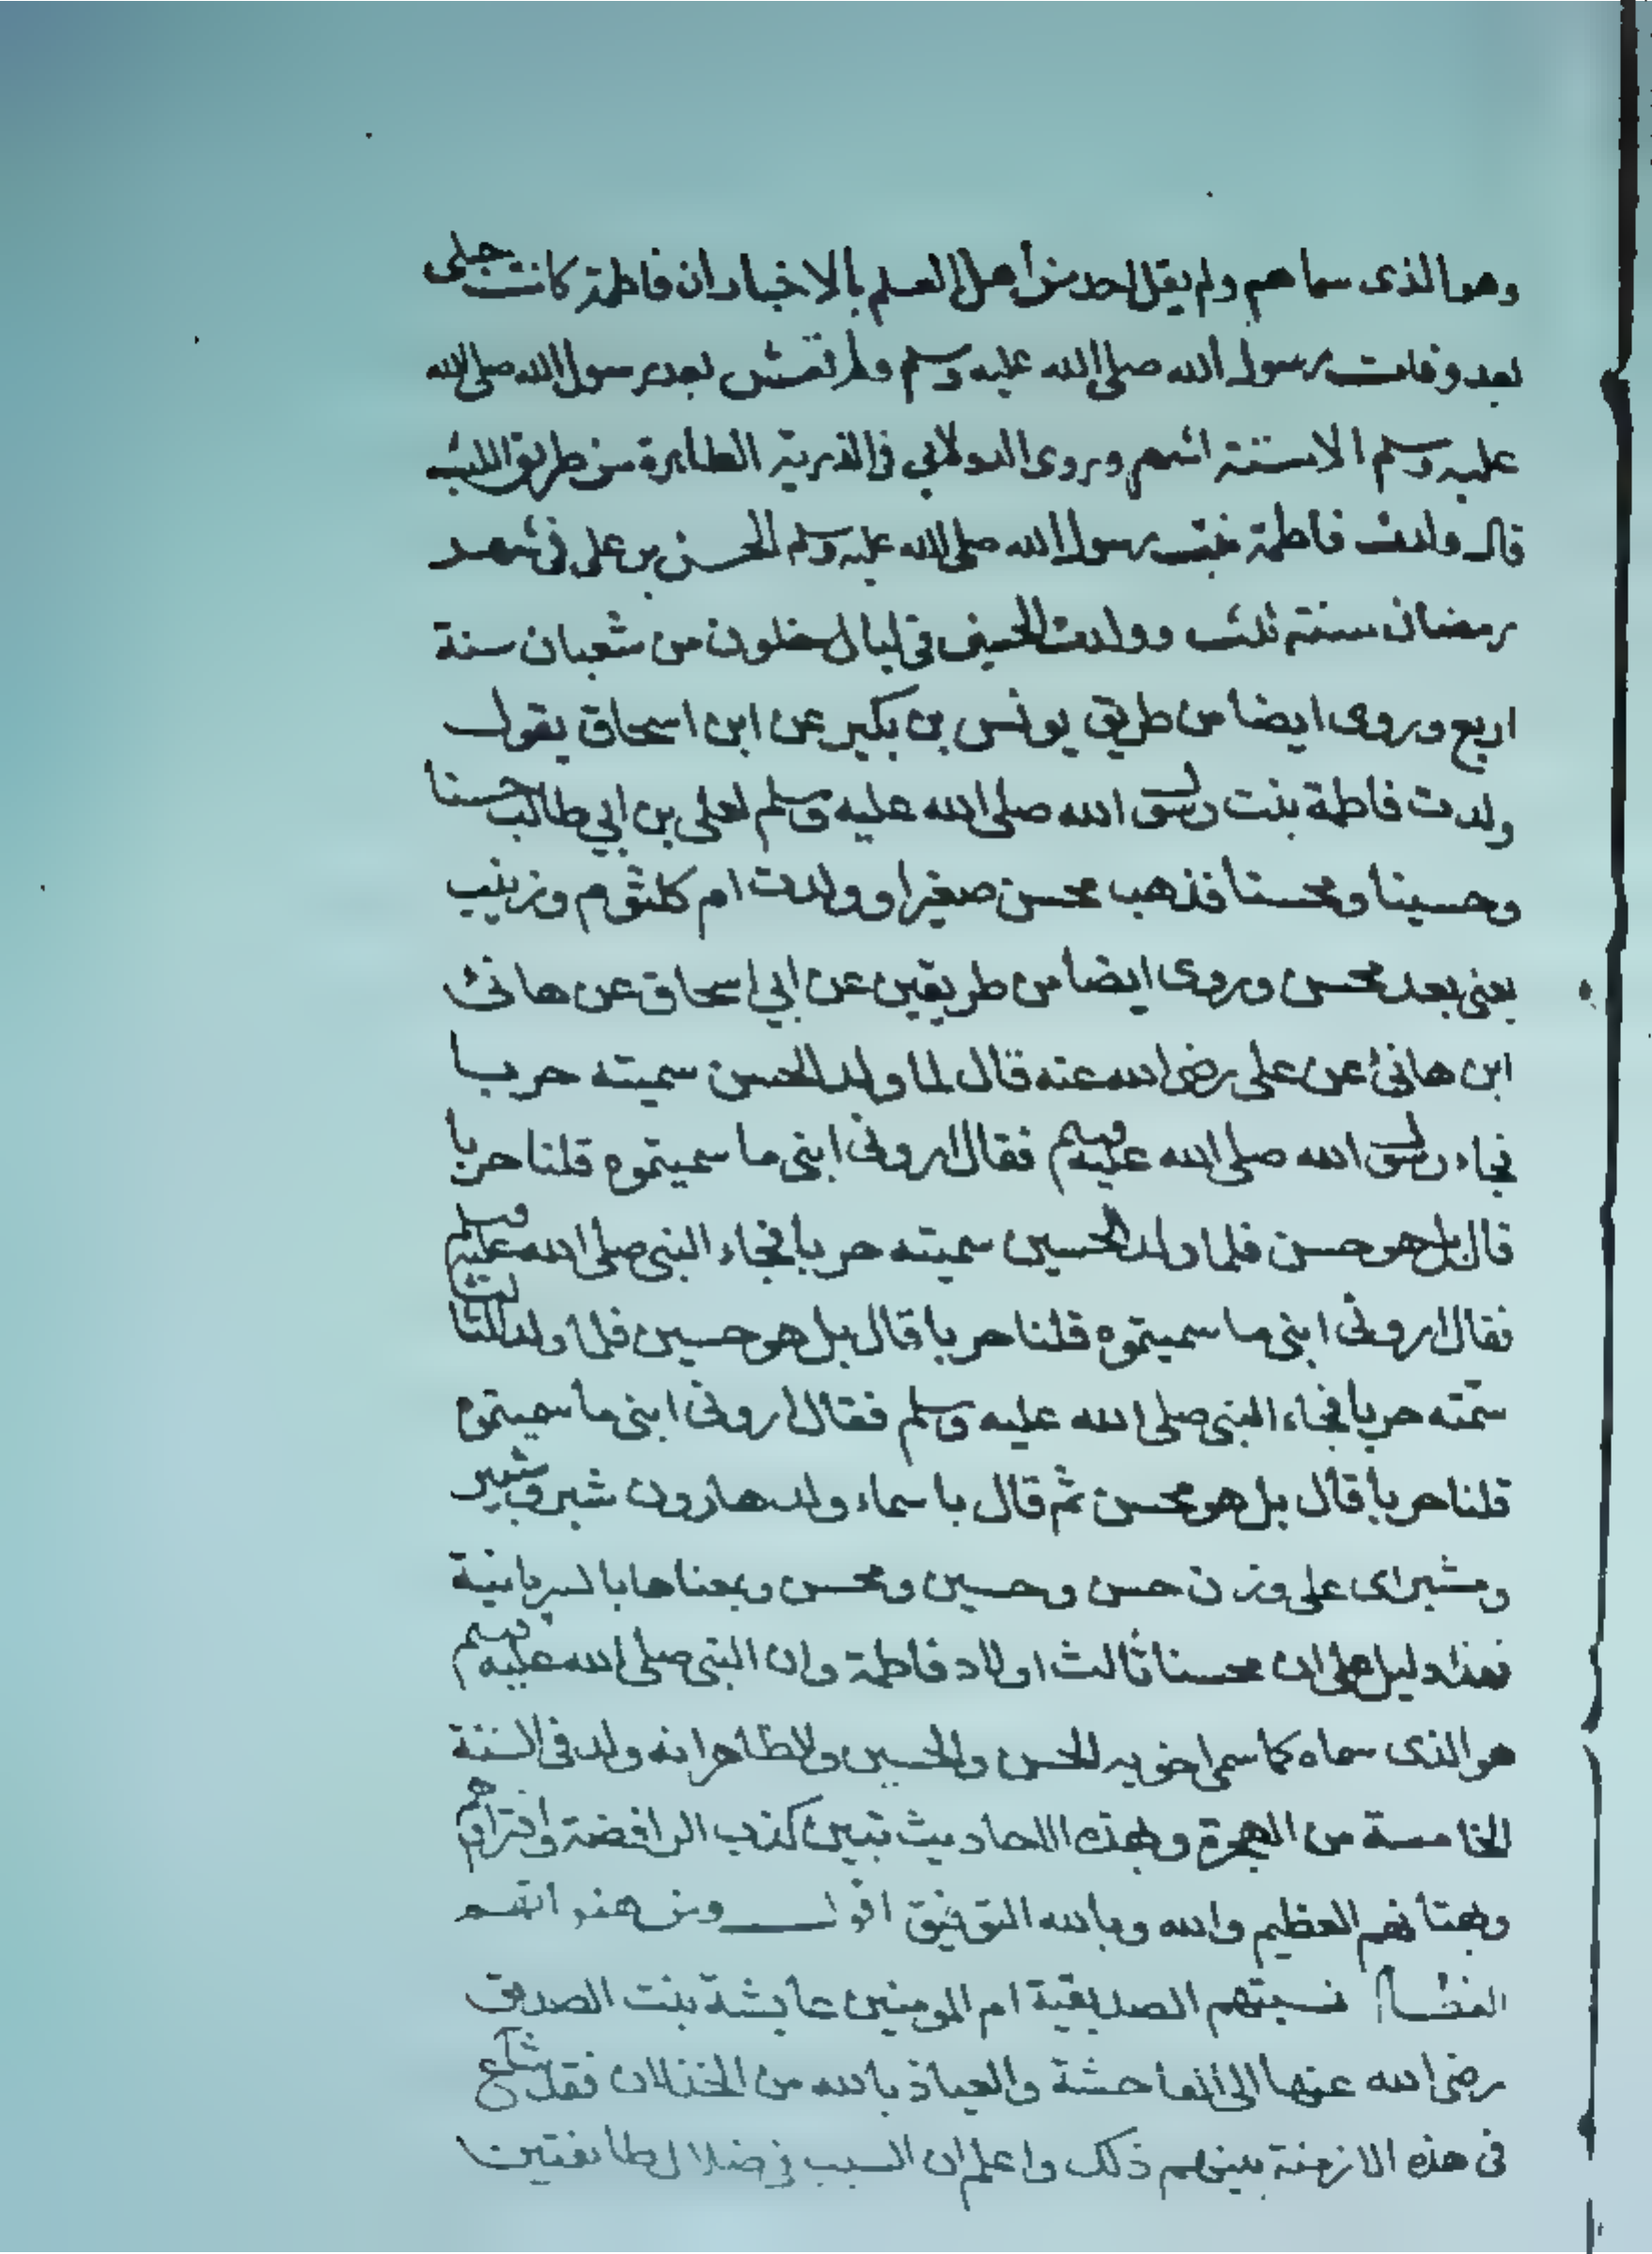 وهو الذى سماهم ولم يقل احد من أهل العلم بالاخبار ان فاطمة كانت حبلى
بعد وفات رسول الله صلى الله عليه وسلم ولم تعش بعد رسول الله صلى الله
عليه وسلم الا ستة اشهر وروى الدولابي فى الذرية الطاهرة من طريق الليث
قال ولدت فاطمة بنت رسول الله صلى الله عليه وسلم الحسن بن على فى شهر
رمضان سنة ثلث وولدت الحسين فى ليال خلون من شعبان سنة
اربع وروى ايضا من طريق يونس بن بكير عن ابن اسحاق يقول
ولدت فاطمة بنت رسول الله صلى الله عليه وسلم لعلى بن ابي طالب حسنا
وحسينا ومحسنا فذهب محسن صغيرا وولدت ام كلثوم وزينب
يعنى بعد محسن وروى ايضا من طريقين عن ابي اسحاق عن هانئ
ابن هانئ عن على رضى الله عنه قال لما ولد الحسن سميته حربا
فجاء رسول الله صلى الله عليه وسلم فقال ارونى ابنى ما سميتموه قلنا حربا
قال بل هو حسن فلما ولد الحسين سميته حربا فجاء النبى صلى الله عليه وسلم
فقال ارونى ابنى ما سميتموه قلنا حربا قال بل هو حسين فلما ولد الثالث
سمته حربا فجاء النبى صلى الله عليه وسلم فقال ارونى ابنى ما سميتموه
قلنا حربا قال بل هو محسن ثم قال باسماء ولد هارون شبر وشبير
ومشبر اى على وزن حسن وحسين ومحسن وبمعناها بالسريانية
فهذا دليل على ان محسنا ثالث اولاد فاطمة وان النبى صلى الله عليه وسلم
هو الذى سماه كما سمى اخويه الحسن والحسين والظاهر انه ولد فى السنة
الخامسة من الهجرة وبهذه الاحاديث تبين كذب الرافضة وافتراؤهم
وبهتانهم العظيم والله وبالله التوفيق اقول ومن هفواتهم
نسبتهم الصديقية ام المومنين عايشة بنت الصديق
رضى الله عنها الى الفاحشة والعياذ بالله من الخذلان فقد شاع
فى هذه الازمنة بينهم ذلك واعلم ان السبب فى ضلال طايفتين